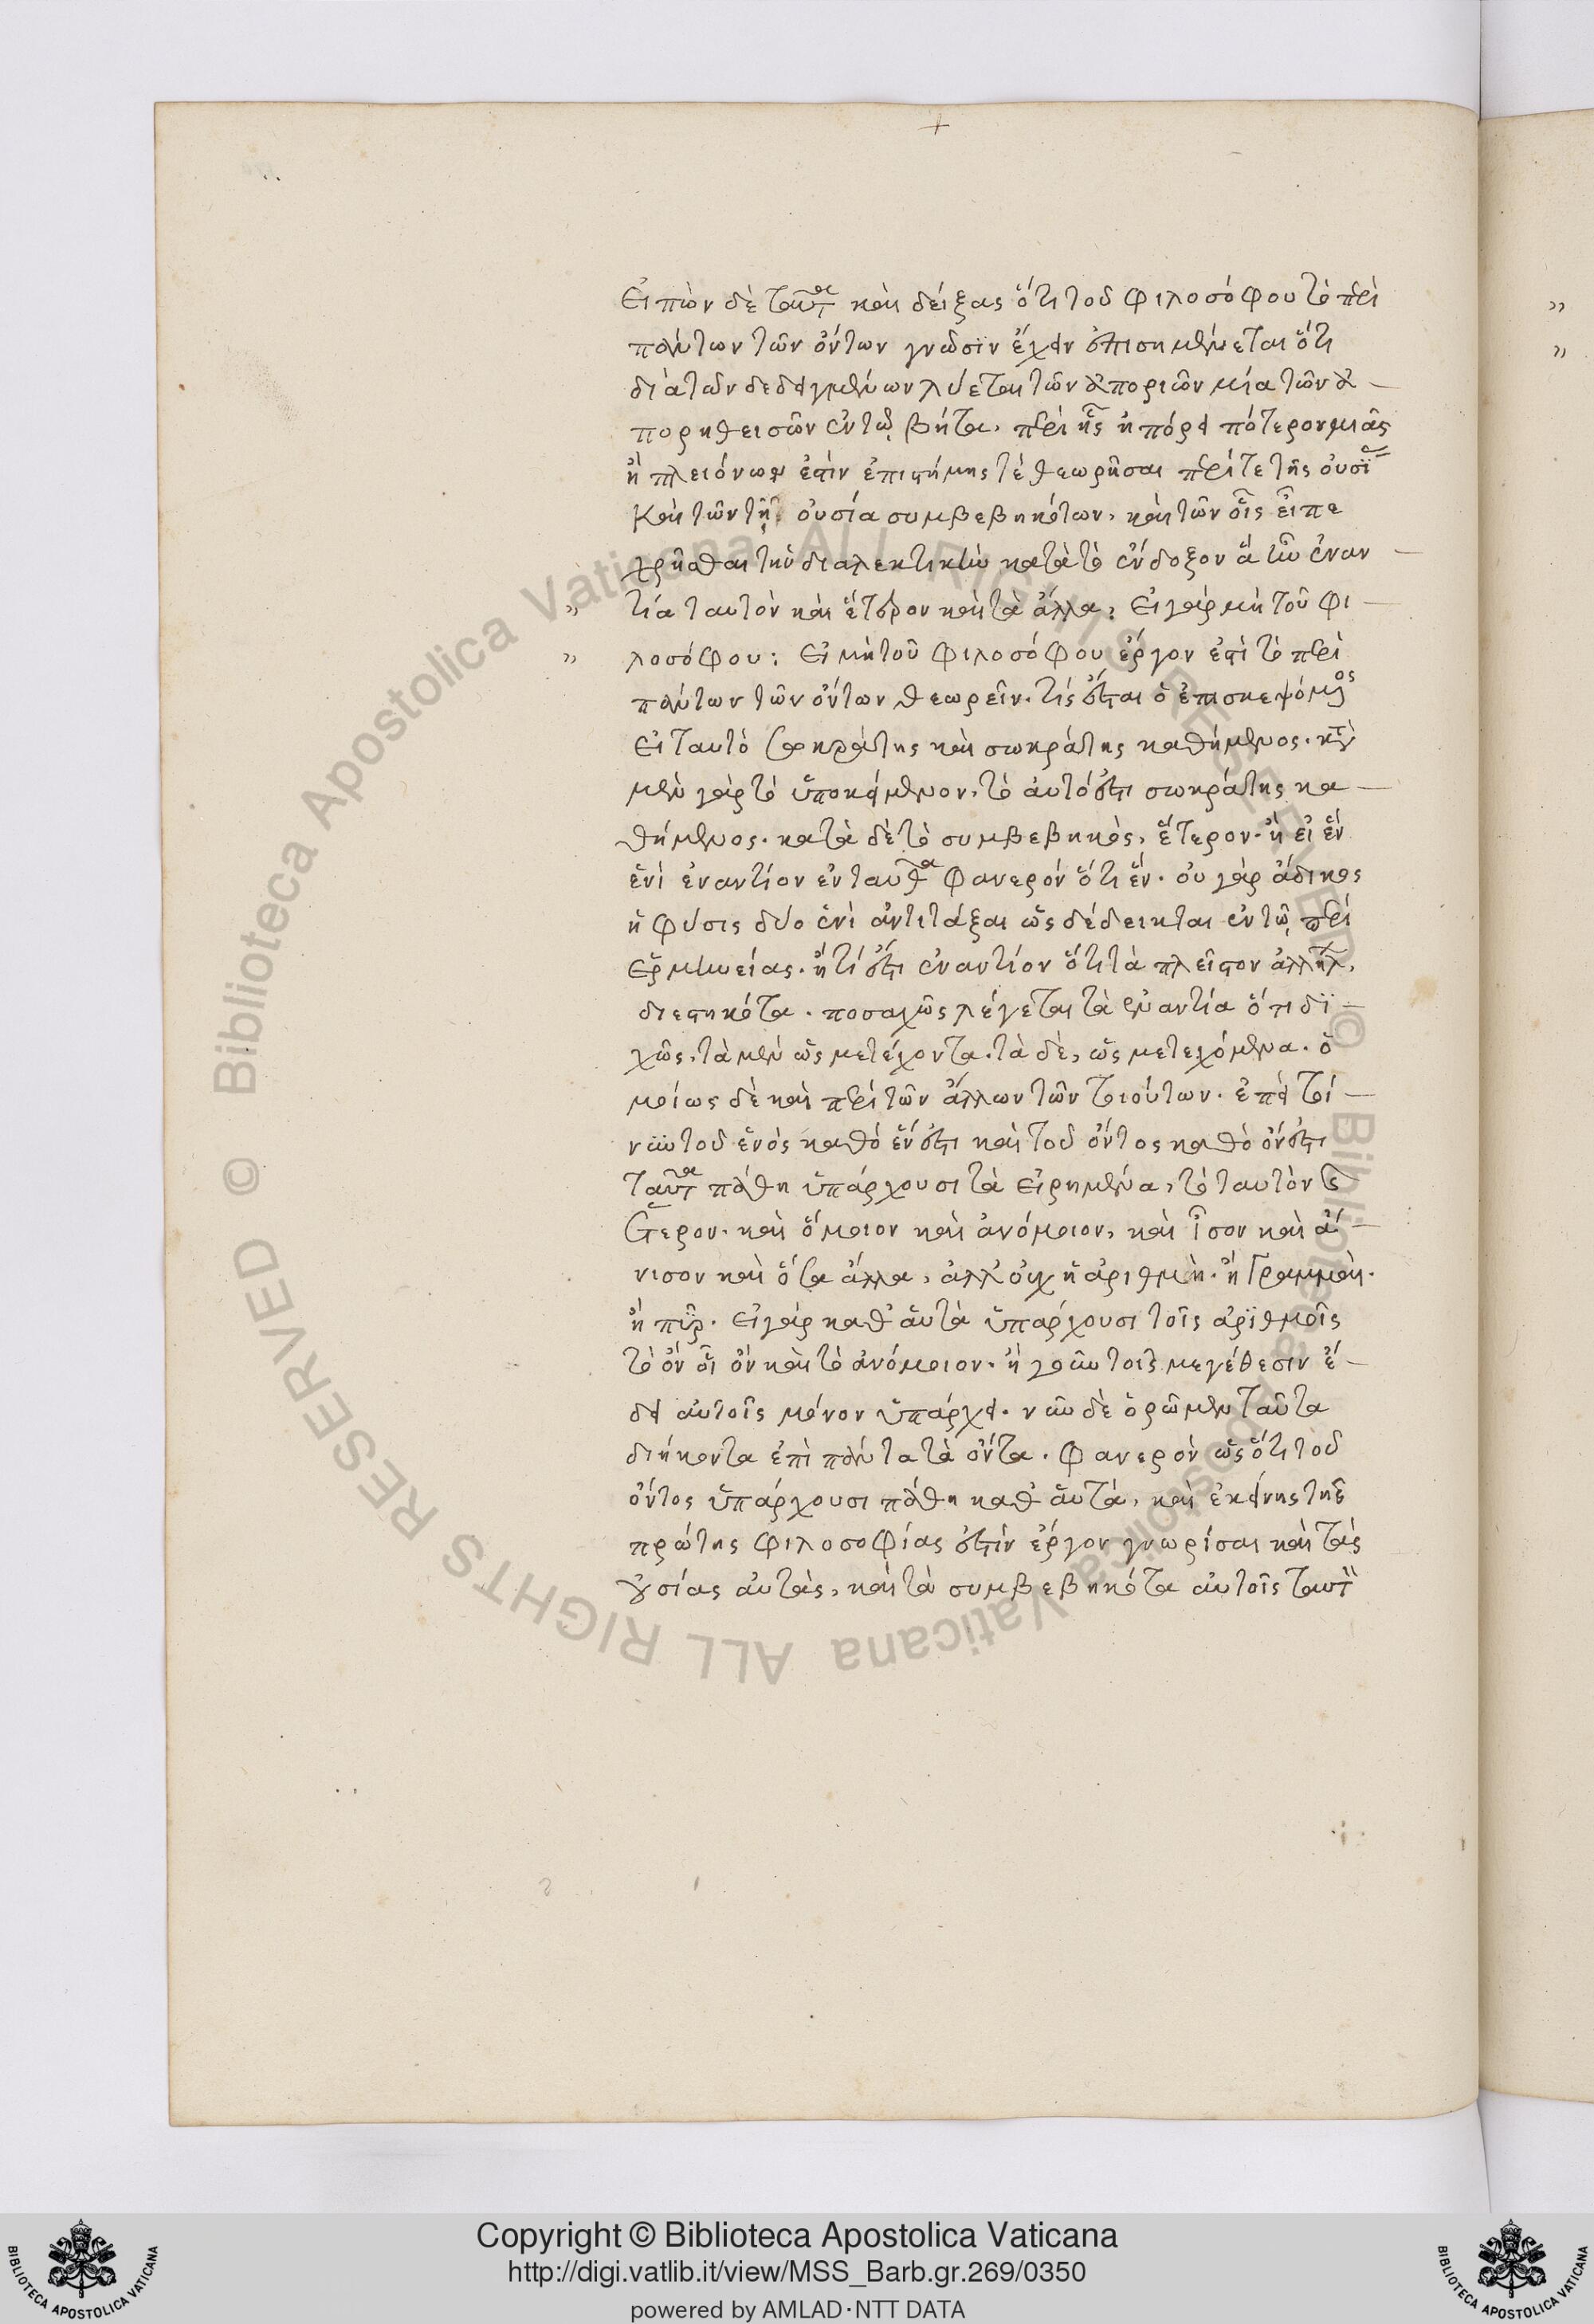 Εἰπὼν δὲ ταῦτα καὶ δείξας ὅτι τοῦ φιλοσόφου τὸ περὶ
πάντων τῶν ὄντων γνῶσϊν ἔχειν ἐπισημαίνεται ὅτι
διὰ τῶν δεδειγμένων λύεται τῶν ἀποριῶν μία τῶν ἀ
πορηθεισῶν ἐν τῷ βῆτα. περὶ ἧς ἠπόρει πότερον μιᾶς
ἢ πλειόνων ἐστὶν ἐπιστήμης τὲ θεωρῆσαι περί τε τῆς οὐσί
καὶ τῶν τῇ οὐσία συμβεβηκότων, καὶ τῶν οἷς εἶπε
χρῆσθαι τὴν διαλεκτικὴν κατὰ τὸ ἔνδοξον ἃ ἦν ἐναν
» τία ταυτὸν καὶ ἕτερον καὶ τὰ ἄλλα, Εἰ γὰρ μὴ τοῦ φι
» λοσόφου: Εἰ μὴ τοῦ φιλοσόφου ἔργον ἐστὶ τὸ περὶ
πάντων τῶν ὄντων θεωρεῖν. τίς ἔσται ὁ ἐπισκεψόμενος
εἰ ταυτὸ σωκράτης καὶ σωκράτης καθήμενος. κατὰ
μὲν γὰρ τὸ ὑποκείμενον, τὸ αὐτό ἐστι σωκράτης κα
θήμενος. κατὰ δὲ τὸ συμβεβηκὸς, ἕτερον. ἢ εἰ ἓν
ἑνὶ ἐναντίον ἐνταῦθα φανερὸν ὅτι ἕν. οὐ γὰρ ἄδικος
ἡ φύσις δύο ἑνὶ ἀντιτάξαι ὡς δέδεικται ἐν τῷ περὶ
ἑρμηνείας. ἢ τί ἐστι ἐναντίον ὅτι τὰ πλεῖστον ἀλλήλ
διεστηκότα. ποσαχῶς λέγεται τὰ ἐναντία ὅτι δϊ
χῶς, τὰ μὲν ὡς μετέχοντα. τὰ δὲ, ὡς μετεχόμενα. ὁ
μοίως δὲ καὶ περὶ τῶν ἄλλων τῶν τοιούτων. ἐπεὶ τοί
νυν τοῦ ἑνὸς καθό ἕν ἐστι καὶ τοῦ ὄντος καθὸ ὄν ἐστι
ταῦτα πάθη ὑπάρχουσι τὰ εἰρημένα, τὸ ταυτὸν καὶ
ἕτερον. καὶ ὅμοιον καὶ ἀνόμοιον, καὶ ἶσον καὶ ἄ
νισον καὶ ὅσα ἄλλα, ἀλλ' οὐχ ᾗ ἀριθμοὶ. ἢ γραμμαὶ.
ἢ πῦρ. εἰ γὰρ καθ' αὑτὰ ὑπάρχουσι τοῖς ἀρϊθμοῖς
τὸ ὂν ᾗ ὂν καὶ τὸ ἀνόμοιον. ἢ γοῦν τοῖς μεγέθεσιν ἔ
δει αὐτοῖς μόνον ὑπάρχει. νῦν δὲ ὁρῶμεν ταῦτα
διήκοντα ἐπὶ πάντα τὰ ὄντα. φανερὸν ὡς ὅτι τοῦ
ὄντος ὑπάρχουσι πάθη καθ' αὑτὰ, καὶ ἐκείνης τῆς
πρώτης φιλοσοφίας ἐστὶν ἔργον γνωρίσαι καὶ τὰς
οὐσίας αὐτὰς, καὶ τὰ συμβεβηκότα αὐτοῖς
Copyright © Biblioteca Apostolica Vaticana
http://digi.vatlib.it/view/MSS_Barb.gr.269/0350
powered by AMLAD·NTT DATA
BIBLIOTECA APOSTOLICA VATICANA
BIBLIOTECA APOSTOLICA VATICANA
© Biblioteca Apostolica Vaticana ALL RIGHTS RESERVED
© Biblioteca Apostolica Vaticana ALL RIGHTS RESERVED